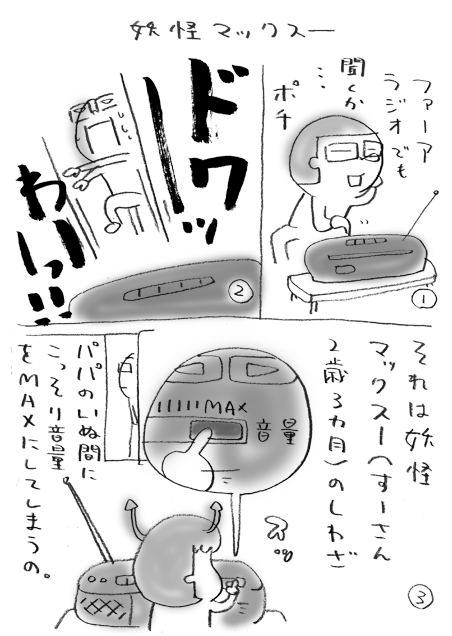 妖怪マックスー
ファーア
ラジオでも
聞くか
…
ポチ
①
ドワッ
わいっ!!
②
それは妖怪
マックスー(すーさん
2歳3カ月)のしわざ
MAX
音量
パパのいぬ間に
こっそり音量
をMAXにしてしまうの。
③